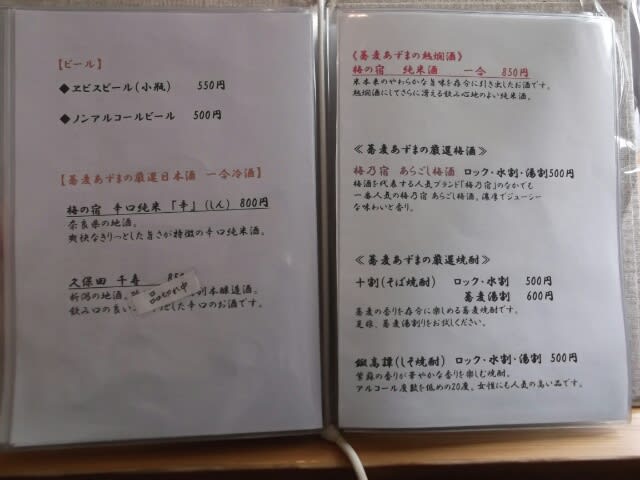 【ビール】
◆ヱビスビール(小瓶) 550円
◆ノンアルコールビール 500円
【蕎麦あずまの厳選日本酒 一合冷酒】
梅の宿 辛口純米「辛」(しん) 800円
奈良県の地酒。
爽快なきりっとした旨さが特徴の辛口純米酒。
久保田 千寿
新潟の地酒。 別本醸造酒。
品切れ中
飲み口の良い とした辛口のお酒です。
《蕎麦あずまの熱燗酒》
梅の宿 純米酒 一合 850円
米本来のやわらかな旨味を存分に引き出したお酒です。
熱燗酒にしてさらに冴える飲み心地のよい純米酒。
≪蕎麦あずまの厳選梅酒≫
梅乃宿 あらごし梅酒 ロック・水割・湯割500円
梅酒を代表する人気ブランド「梅乃宿」のなかでも
一番人気の梅乃宿 あらごし梅酒、濃厚でジューシー
な味わいと香り。
≪蕎麦あずまの厳選焼酎≫
十割(そば焼酎) ロック・水割 500円
蕎麦湯割 600円
蕎麦の香りを存分に楽しめる蕎麦焼酎です。
是非、蕎麦湯割りをお試しください。
鍛高譚(しそ焼酎) ロック・水割・湯割 500円
紫蘇の香りが華やかな香りを楽しむ焼酎。
アルコール度数を低めの20度、女性にも人気の高い品です。